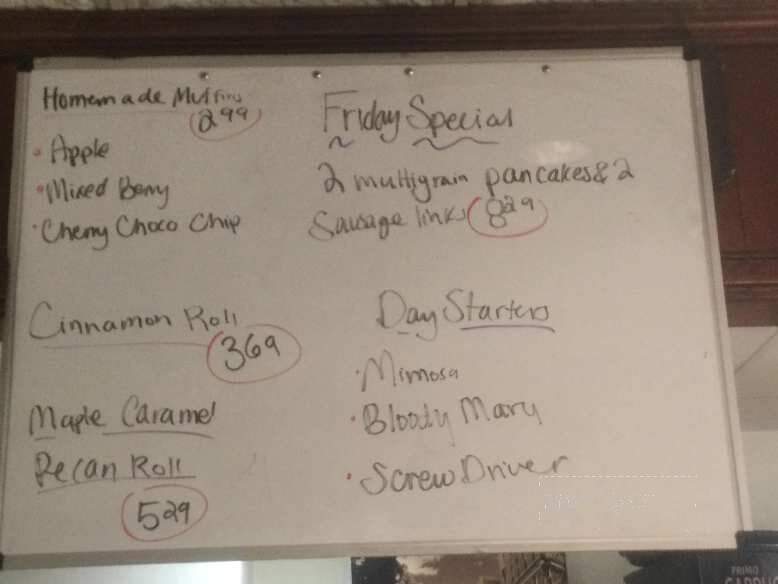 Homemade Muffins
299
• Apple
• Mixed Berry
• Cherry Choco Chip
Cinnamon Roll
369
Maple Caramel
Pecan Roll
529
Friday Special
2 multigrain pancakes & 2
Sausage links 829
Day Starters
• Mimosa
• Bloody Mary
• Screw Driver
PRIMO